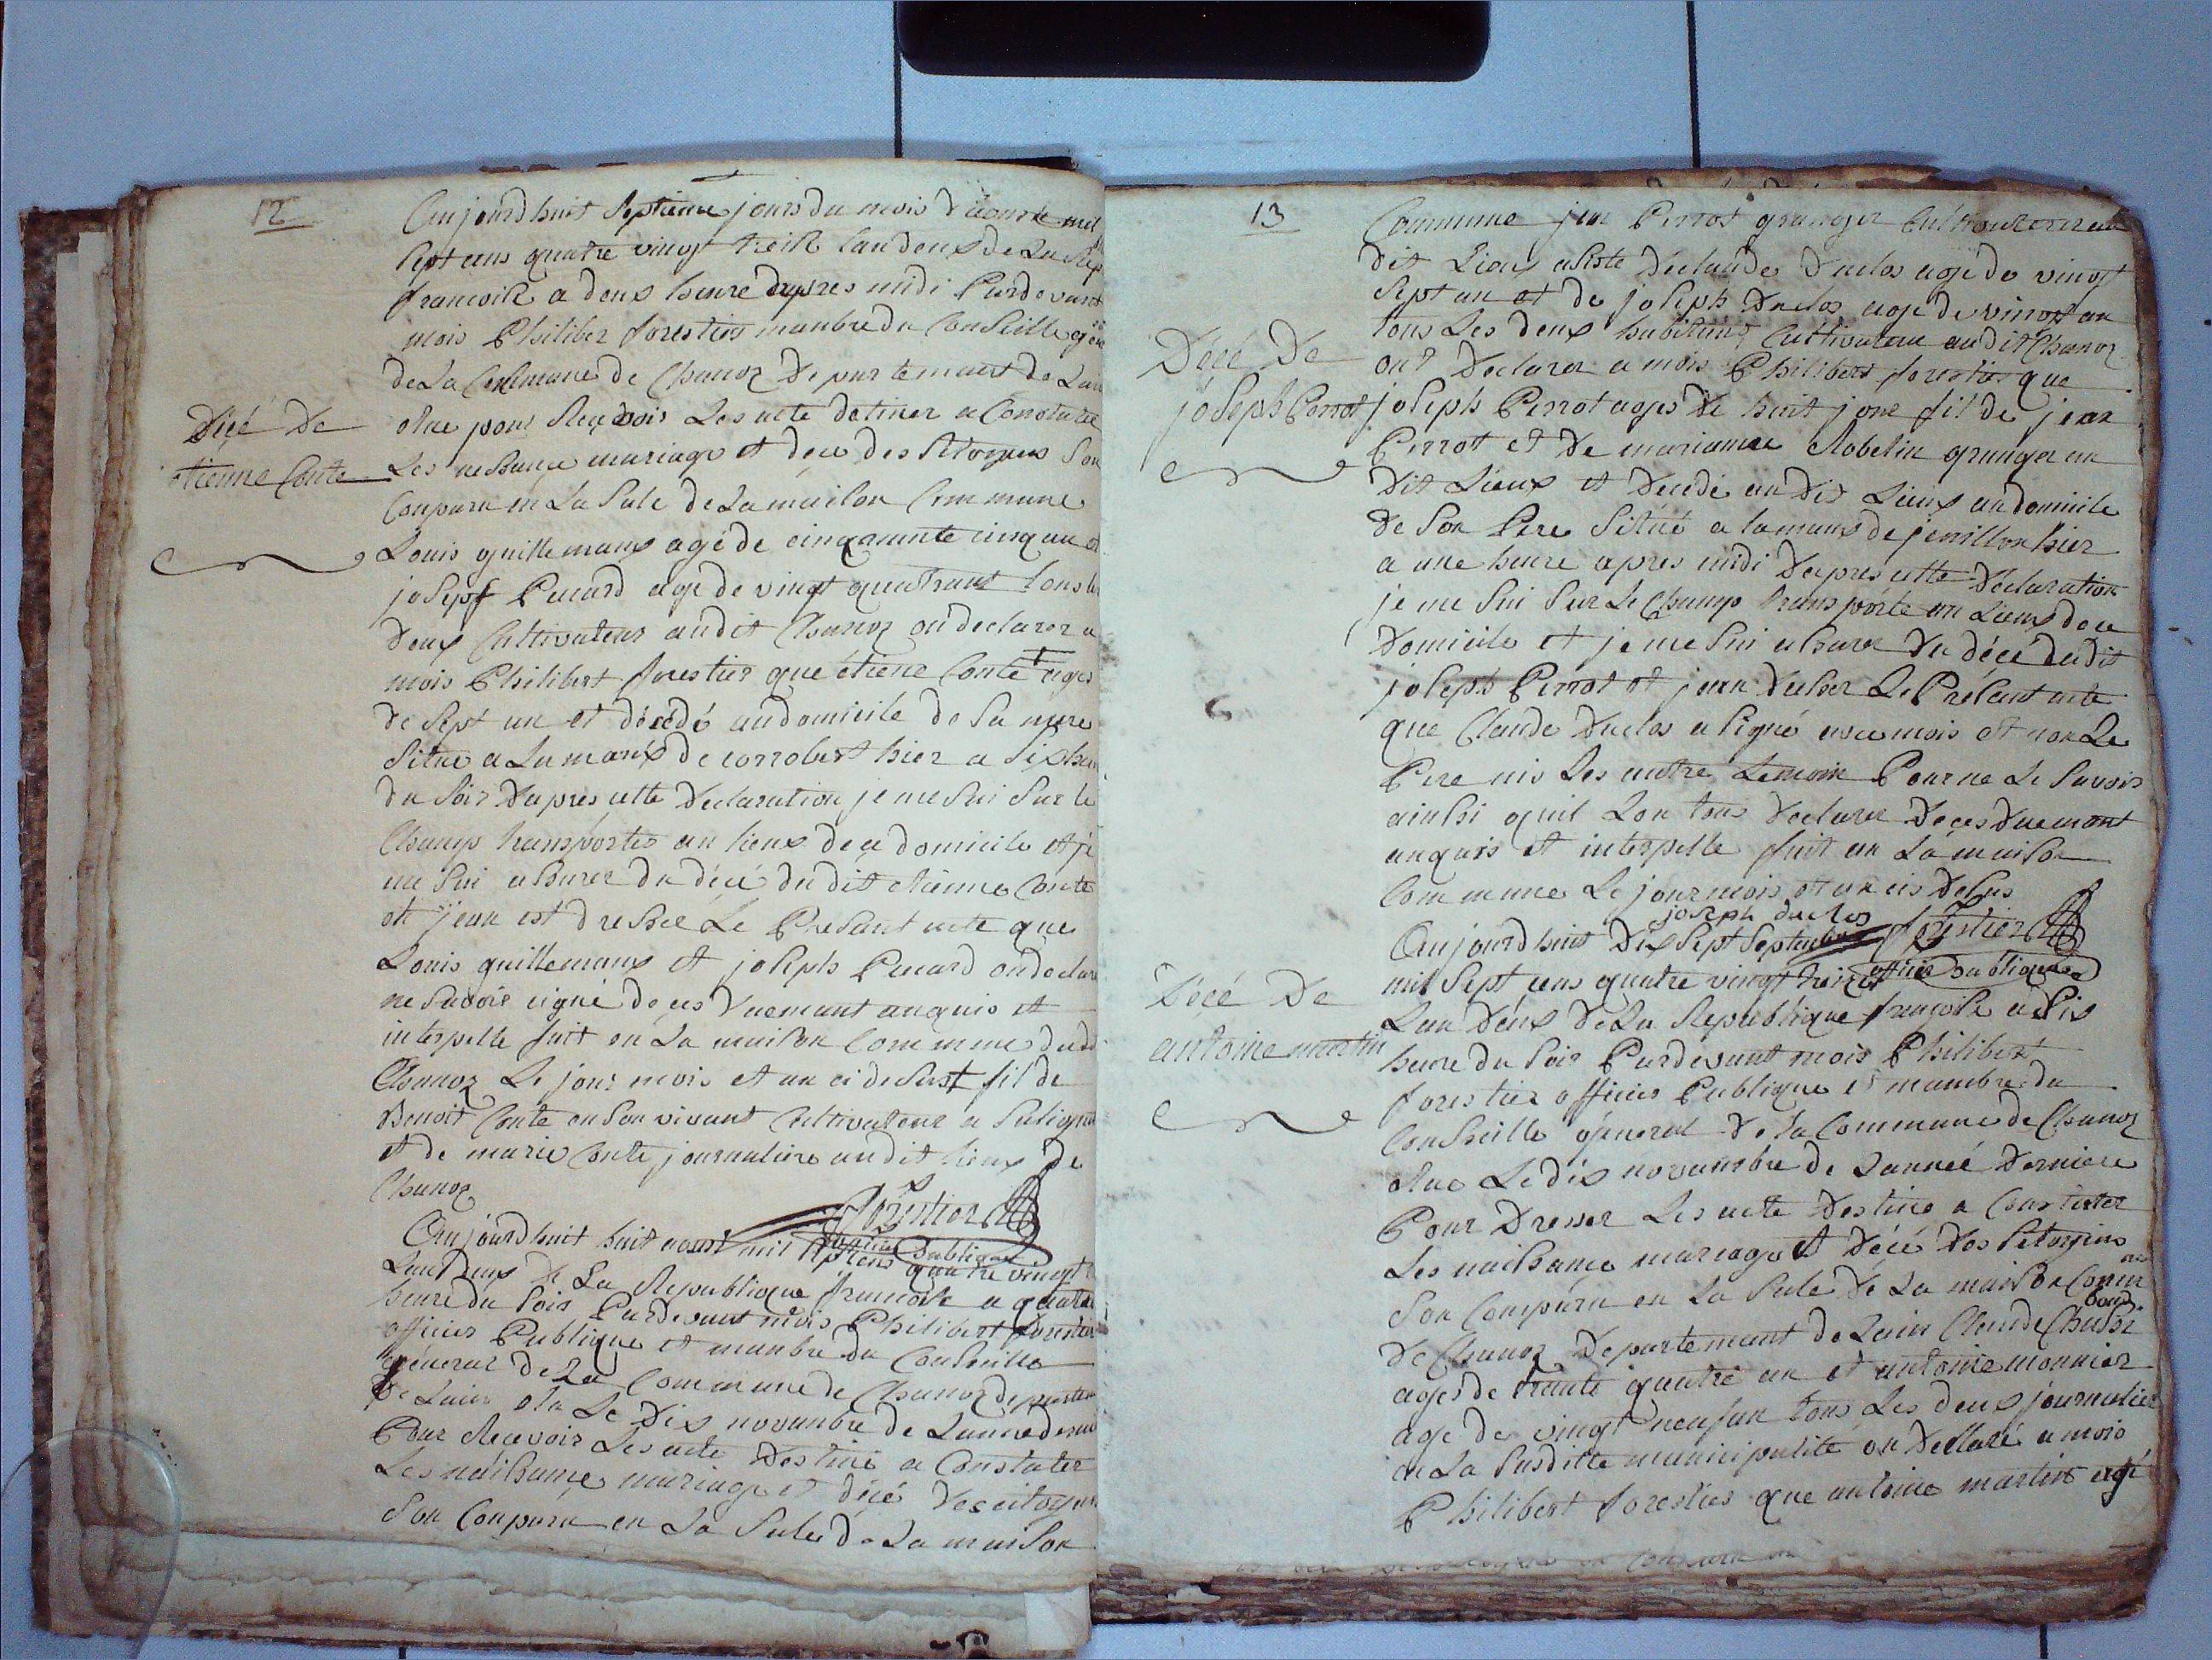 12
Aujourd huit septieme jours du mois d'aoust mil
sept cens quatre vingt treise l'an deux de La Rep
francoise a deux heure dapres midi Pardevant
mois Philiber forestier manbre du Conseille gen
de La Commune de Chanoz Departemant de Lain
elue pour Recevois Les acte detiner a Constater
Décé De
etienne Conte
Les nessance mariage et déce des sitoyens son
Conparu en La Sale de La maison Commune
Louis guillemaux agé de cinquante cinq an et
josepf Pucard age de vingt quatrant tous les
deux Cultivateur audit Chanoz on declarer a
mois Philibert forestier que étiene Conte ages
de sept an et décédé au domicile de sa mere
situe a La mans de corrobert hier a six heur
du soir Dapres cette Declaration je me sui sur le
Champ transporter au lieux de ce domicile et je
me sui assurer du décé du dit etienne Conte
et jean est dressee Le Presant acte que
Louis guillemaux et joseph Pucard on declare
ne savoir signé de ces Duemant anquis et
interpelle fait en La maison Commune dudit
Chanoz Le jour mois et an ci desust fil de
Benoit Conte en son vivant Cultivateur a Suligna
et de marie Conte journaliere audit lieux de
Chanoz
forestier
officier Publique
Aujourd huit huit aoust mil sept cens quatre vingt
Lan Deux de La Republique francoise a quatre
heure du soir Pardevant mois Philibert forestier
officier Publique et manbre du Conseille
géneral de La Commune de Chanoz departem
de Lain elu Le Dix novanbre de Lanne derni
Pour Recevoir Les acte Destiné a Constater
Les naissance mariage et décé Des citoyens
son Conparu en La Sale de La maison
13
Commune jean Perrot granger Cultivateur au
dit Lieux asiste de claude Duclos agé de vingt
sept an et de joseph Duclos age de vingt an
tous Les deux habitant Cultivateur audit Chanoz
Décé De
joseph Perrot
ont Declarer a mois Philibert forestier que
joseph Perrot ages de huit jour fil de jean
Perrot et de mariamne Robelin granger au
Dit Lieux et Decédé au Dit Lieux au domicile
de son Pere Situé a la mans de jenillon hier
a une heure apres midi Dapres cette Declaration
je me sui sur Le Champ transporté au Lieux de ce
Domicile et je me sui assurer Du décé du dit
joseph Perrot et jean dresser Le Presant acte
que Claude Duclos a signé avec mois et non Le
Pere nis Les autre temoin Pour ne Le savoir
ainsi quil Lon tous Declarer de ces Duemant
anquis et interpelle fait an La maison
Commune Le jour mois et an cis desus
joseph duclos forestier
officier Publique
Décé De
antoine martin
Aujourd huit Dix Sept Septembre
mil sept cens quatre vingt treize
Lan Deux De La Republique françoise a sis
heure du soir Pardevant mois Philibert
forestier officier Publique et manbre du
Conseille géneral De la Commune de Chanoz
elue Le dix novanbre de L'année Derniere
Pour Dresser Les acte Destine a Constater
Les naissance mariage et Décé Des sitoyens
son Conparu en La Sale De La maison Comm
De Chanoz Departemant de Lain Claude
ages de trante quatre an et antoine monnier
age de vingt neuf an tous Les deux journalier
en La susditte municipalité on Declaré a mois
Philibert forestier que antoine martin agé